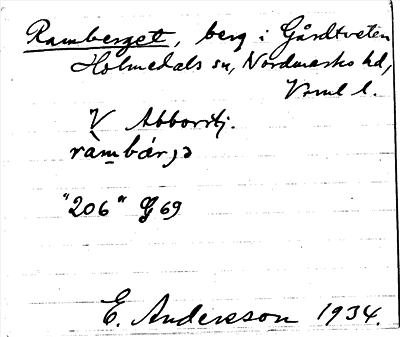 Ramberget, berg i Gårdtveten
Holmedals sn, Nordmarks hd,
Vrml l.
V Abborrtj.
ràmbár̡ə
"206" G69
E. Andersson 1934.